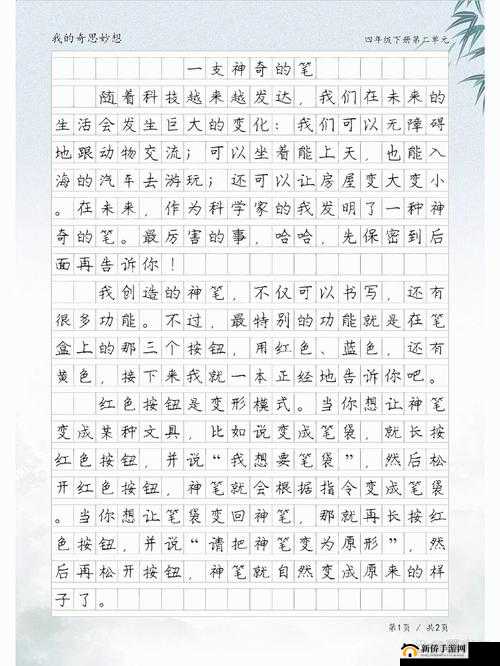 我的奇思妙想
四年级下册第二单元
一支神奇的笔
随着科技越来越发达，我们在未来的
生活会发生巨大的变化：我们可以无障碍
地跟动物交流；可以坐着能上天，也能入
海的汽车去游玩；还可以让房屋变大变小
。在未来，作为科学家的我发明了一种神
奇的笔。最厉害的事，哈哈，先保密到后
面再告诉你！
我创造的神笔，不仅可以书写，还有
很多功能。不过，最特别的功能就是在笔
盒上的那三个按钮，用红色、蓝色，还有
黄色，接下来我就一本正经地告诉你吧。
红色按钮是变形模式。当你想让神笔
变成某种文具，比如说变成笔袋，就长按
红色按钮，并说“我想要笔袋”，然后松
开红色按钮，神笔就会根据指令变成笔袋
。当你想让笔袋变回神笔，那就再长按红
色按钮，并说“请把神笔变为原形”，然
后再松开按钮，神笔就自然变成原来的样
子了。
第1页 / 共2页
新侨手游网